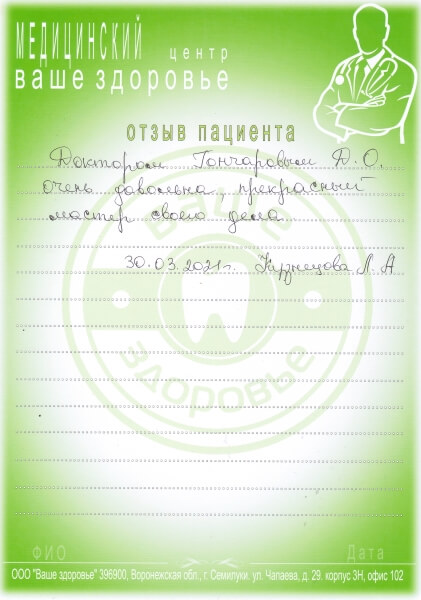 МЕДИЦИНСКИЙ центр
ваше здоровье
отзыв пациента
Доктором Гончаровым Д.О.
очень довольна, прекрасный
мастер своего дела.
30.03.2021г. Кузнецова Л.А
ВАШЕ
ЗДОРОВЬЕ
ФИО Дата
ООО "Ваше здоровье" 396900, Воронежская обл., г. Семилуки. ул. Чапаева, д. 29. корпус 3Н, офис 102